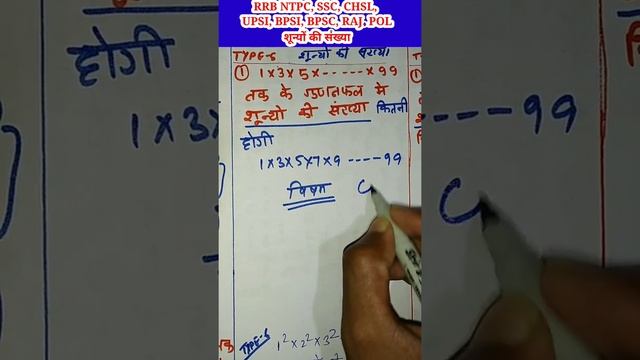 RRB NTPC, SSC, CHSL,
UPSI, BPSI, BPSC, RAJ, POL
शून्यों की संख्या
TYPE-5 शून्यो की संख्या
① 1×3×5×------×99
तक के गुणनफल मे
शून्यो की संख्या कितनी
होगी
1×3×5×7×9 -----99
विषम
TYPE-5
1²×2²×3²